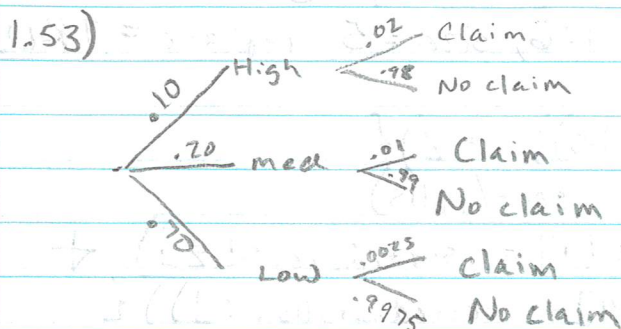 1.53)
.02 Claim
.10 High .98 No claim
.20 med .01 Claim
.99 No claim
.70 Low .0025 Claim
.9975 No claim